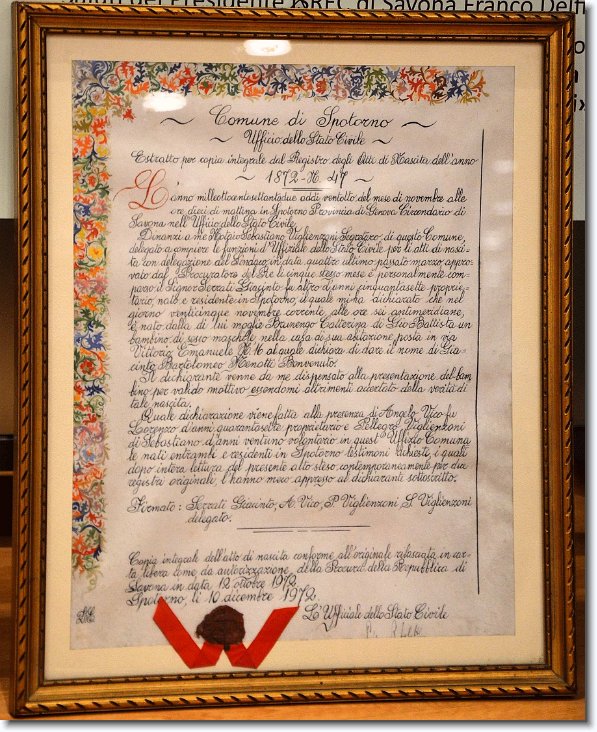 del Presidente SREC di Savona Franco Delfi
Comune di Spotorno
Ufficio dello Stato Civile
Estratto per copia integrale dal Registro degli Atti di Nascita dell'anno
1872 - N. 47
L'anno milleottocentosettantadue addì ventotto del mese di novembre alle
ore dieci di mattina in Spotorno Provincia di Genova Circondario di
Savona nell'Ufficio dello Stato Civile.
Dinanzi a me Notaio Sebastiano Viglienzoni Segretario di questo Comune,
delegato a compiere le funzioni d'Uffiziale dello Stato Civile per li atti di nasci-
ta con delegazione del Sindaco in data quattro ultimo passato marzo, appro-
vata dal Procuratore del Re li cinque stesso mese è personalmente com-
parso il Signor Serrati Giacinto fu altro d'anni cinquantasette proprie-
tario, nato e residente in Spotorno, il quale mi ha dichiarato che nel
giorno venticinque novembre corrente, alle ore sei antimeridiane,
è nato dalla di lui moglie Bamengo Catterina di Gio Battista un
bambino di sesso maschile nella casa di sua abitazione posta in via
Vittorio Emanuele N. 16 al quale dichiara di dare il nome di Gia-
cinto Bartolomeo Menotti Benvenuto.
Il dichiarante venne da me dispensato alla presentazione del bam-
bino per valido mottivo essendomi altrimenti accertato della verità di
tale nascita.
Quale dichiarazione viene fatta alla presenza di Angelo Vico fu
Lorenzo d'anni quarantasette proprietario e Pellegro Viglienzoni
di Sebastiano d'anni ventuno volontario in quest'Uffizio Comuna-
le nati entrambi e residenti in Spotorno testimoni richiesti, i quali
dopo intera lettura del presente atto steso contemporaneamente per due
registri originale, l'hanno meco appresso al dichiarante sottoscritto.
Firmato: Serrati Giacinto, A. Vico, P. Viglienzoni, S. Viglienzoni
delegato.
Copia integrale dell'atto di nascita conforme all'originale rilasciata in car-
ta libera come da autorizzazione della Procura della Repubblica di
Savona in data 12 ottobre 1972.
Spotorno, li 10 dicembre 1972
L'Ufficiale dello Stato Civile